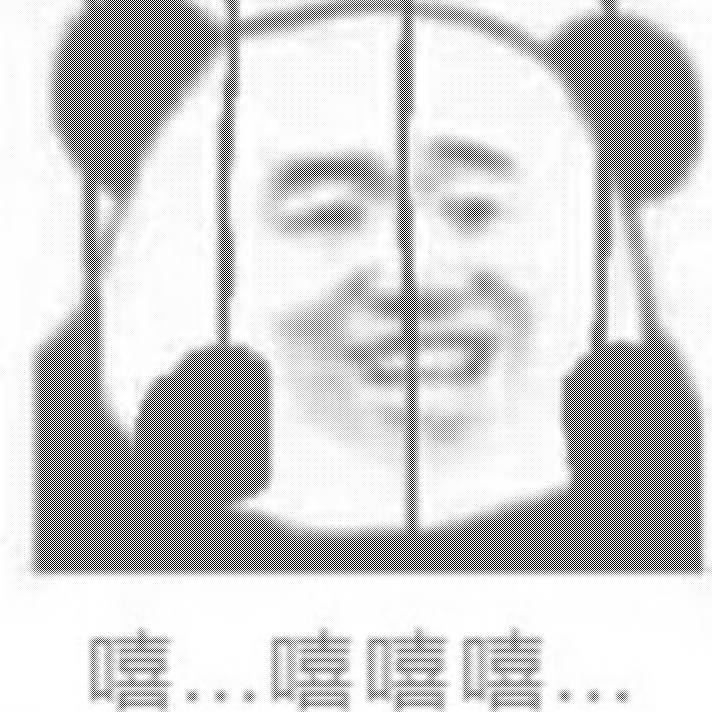 嘻...嘻嘻嘻...